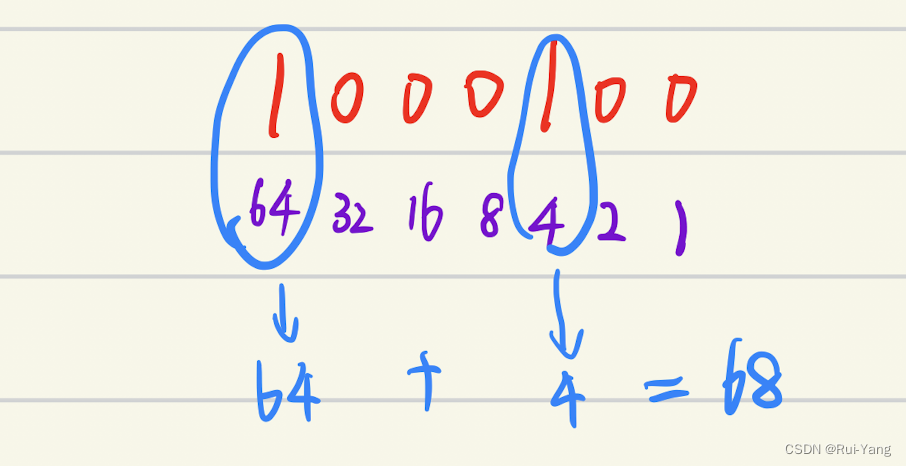 1 0 0 0 1 0 0
64 32 16 8 4 2 1
64 + 4 = 68
CSDN @Rui-Yang